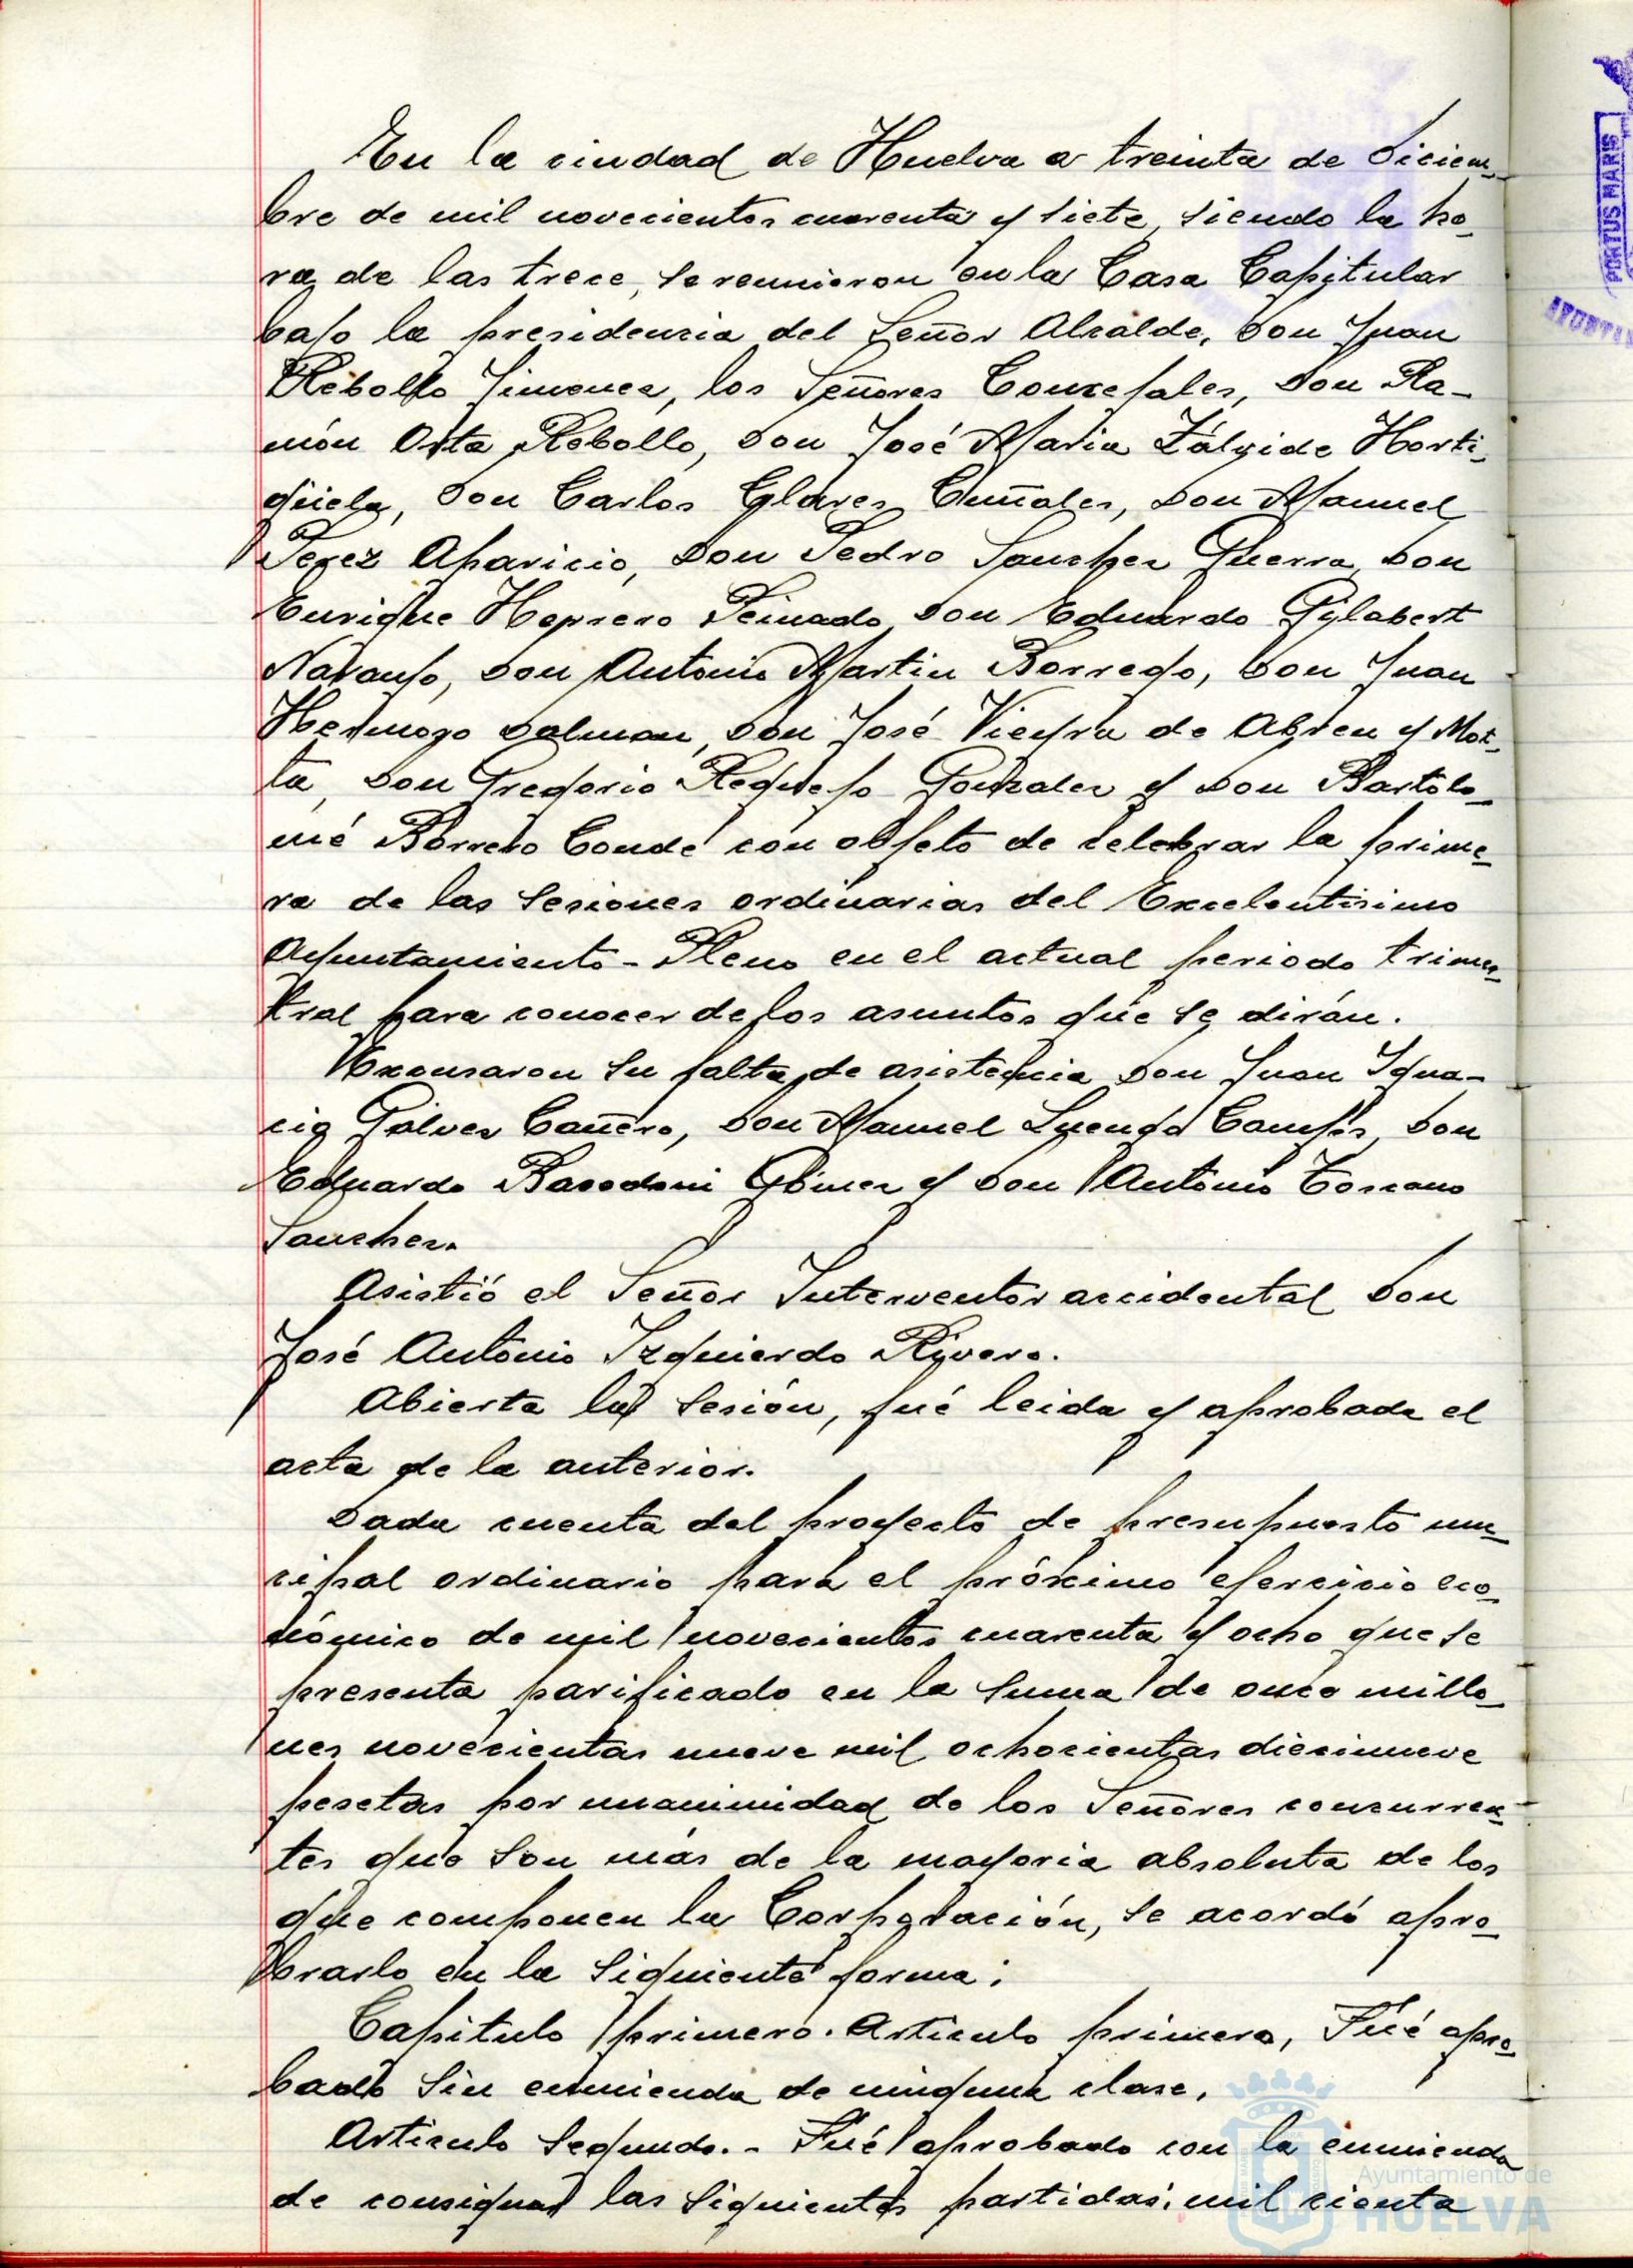 En la ciudad de Huelva a treinta de Diciem-
bre de mil novecientos cuarenta y siete, siendo la ho-
ra de las trece, se reunieron en la Casa Capitular
bajo la presidencia del Señor Alcalde, Don Juan
Rebollo Jimenez, los Señores Concejales, Don Ra-
món Orta Rebollo, Don José Maria Zálvide Horti-
güela, Don Carlos Glares Cuñales, Don Manuel
Perez Aparicio, Don Pedro Sanchez Guerra, Don
Enrique Herrero Peinado, Don Eduardo Gylabert
Naranjo, Don Antonio Martin Borrego, Don Juan
Hermoso Dolman, Don José Vieyra de Abreu y Mot-
ta, Don Gregorio Requejo Gonzalez y Don Bartolo-
mé Borrero Conde con objeto de celebrar la prime-
ra de las sesiones ordinarias del Excelentisimo
Ayuntamiento-Pleno en el actual periodo trimes-
tral para conocer de los asuntos que se dirán.
Excusaron su falta de asistencia Don Juan Igna-
cio Gálvez Cañero, Don Manuel Luengo Campos, Don
Eduardo Bacedoni Gómez y Don Antonio Toscano
Sanchez.
Asistió el Señor Interventor accidental Don
José Antonio Izquierdo Rivero.
Abierta la sesión, fué leida y aprobada el
acta de la anterior.
Dada cuenta del proyecto de presupuesto mu-
cipal ordinario para el próximo ejercicio eco-
nómico de mil novecientos cuarenta y ocho que se
presenta parificado en la suma de once millo-
nes novecientas nueve mil ochocientas diecinueve
pesetas por unanimidad de los Señores concurren-
tes que son más de la mayoria absoluta de los
que componen la Corporación, se acordó apro-
brarlo en la siguiente forma:
Capitulo primero. Articulo primero, Fué apro-
bado sin enmienda de ninguna clase.
Articulo Segundo.- Fué aprobado con la enmienda
de consignar las siguientes partidas: mil cienta
PORTUS MARIS
Ayuntamiento de
HUELVA